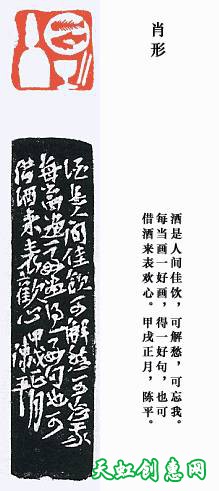 肖形
酒是人间佳饮，可解愁，可忘我。
每当画一好画，得一好句，也可
借酒来表欢心。甲戌正月，陈平。
酒是人间佳饮可解愁可忘我
每当画一好画得一好句也可
借酒来表歡心甲戌正月
陳平
天虹创惠网